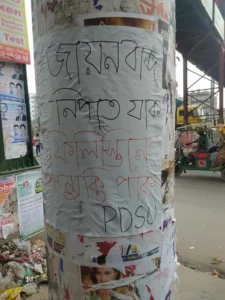 জায়নবাদ
নিপাত যাক
ফিলিস্তিন
মুক্তি পাক
PDSU
Test